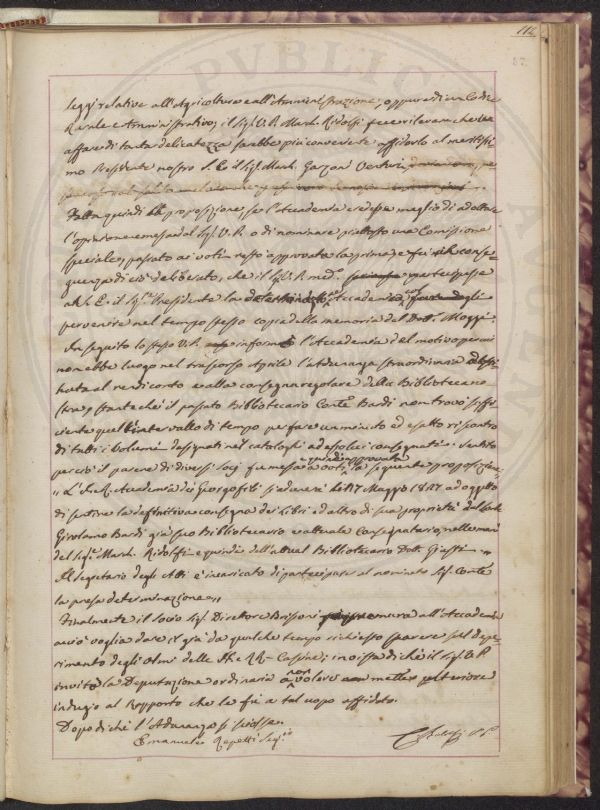 112
leggi relative all'Agricoltura e all'Amministrazione, oppure di un Codice
Rurale e Amministrativo; il Sig. V. P. March. Ridolfi fece rilevare che un
affare di tanta delicatezza sarebbe più conveniente affidarlo al meritissi
mo Presidente nostro S. E. il Sig. March. Garzoni Venturi,
Fatta quindi la proposizione se l'Accademia credesse meglio di adottare
l'opinione emessa dal Sig. V. P. o di nominare piuttosto una Comissione
speciale, passato ai voti restò approvata la prima; e fu in conse-
guenza di ciò deliberato, che il Sig. V. P. med.º partecipasse
a S. E. il Sig.re Presidente la Accademia, con fargli
pervenire nel tempo stesso copia della memoria del Dott. Moggi.
In seguito lo stesso V. P. informò l'Accademia del motivo per cui
non ebbe luogo nel trascorso Aprile l'Adunanza straordinaria
al rendiconto e alla consegna regolare della Biblioteca no
stra, stante che il passato Bibliotecario Conte Bardi non trovò suffi
ciente quell'intervallo di tempo per fare un minuto ed esatto riscontro
di tutti i volumi designati nel catalogo ad esso lui consegnati. Sentito
perciò il parere di diversi Socj fu messa a voti, e quindi approvata la seguente proposizione
" L'I. e R. Accademia dei Georgofili si adunerà il 17 Maggio 1827 ad oggetto
di sentire la definitiva consegna dei Libri ed altro di sua proprietà dal Conte
Girolamo Bardi già suo Bibliotecario e attuale Consegnatario, nelle mani
del Sig.re March. Ridolfi e quindi dell'attual Bibliotecario Dott. Giusti "
Il Segretario degli Atti è incaricato di partecipare al nominato Sig. Conte
la presa determinazione "
Finalmente il Socio Sig. Direttore Brissoni all'Accademia
acciò voglia dare il già da qualche tempo richiesto parere sul Depe-
rimento degli Olmi delle II. e RR. Cascine; in vista di che il Sig. V. P.
invitò la Deputazione ordinaria a non volere mettere ulteriore
indugio al Rapporto che le fu a tal uopo affidato.
Dopo di che l'Adunanza si sciolse.
Emanuele Repetti Seg.º
C. Ridolfi V. P.